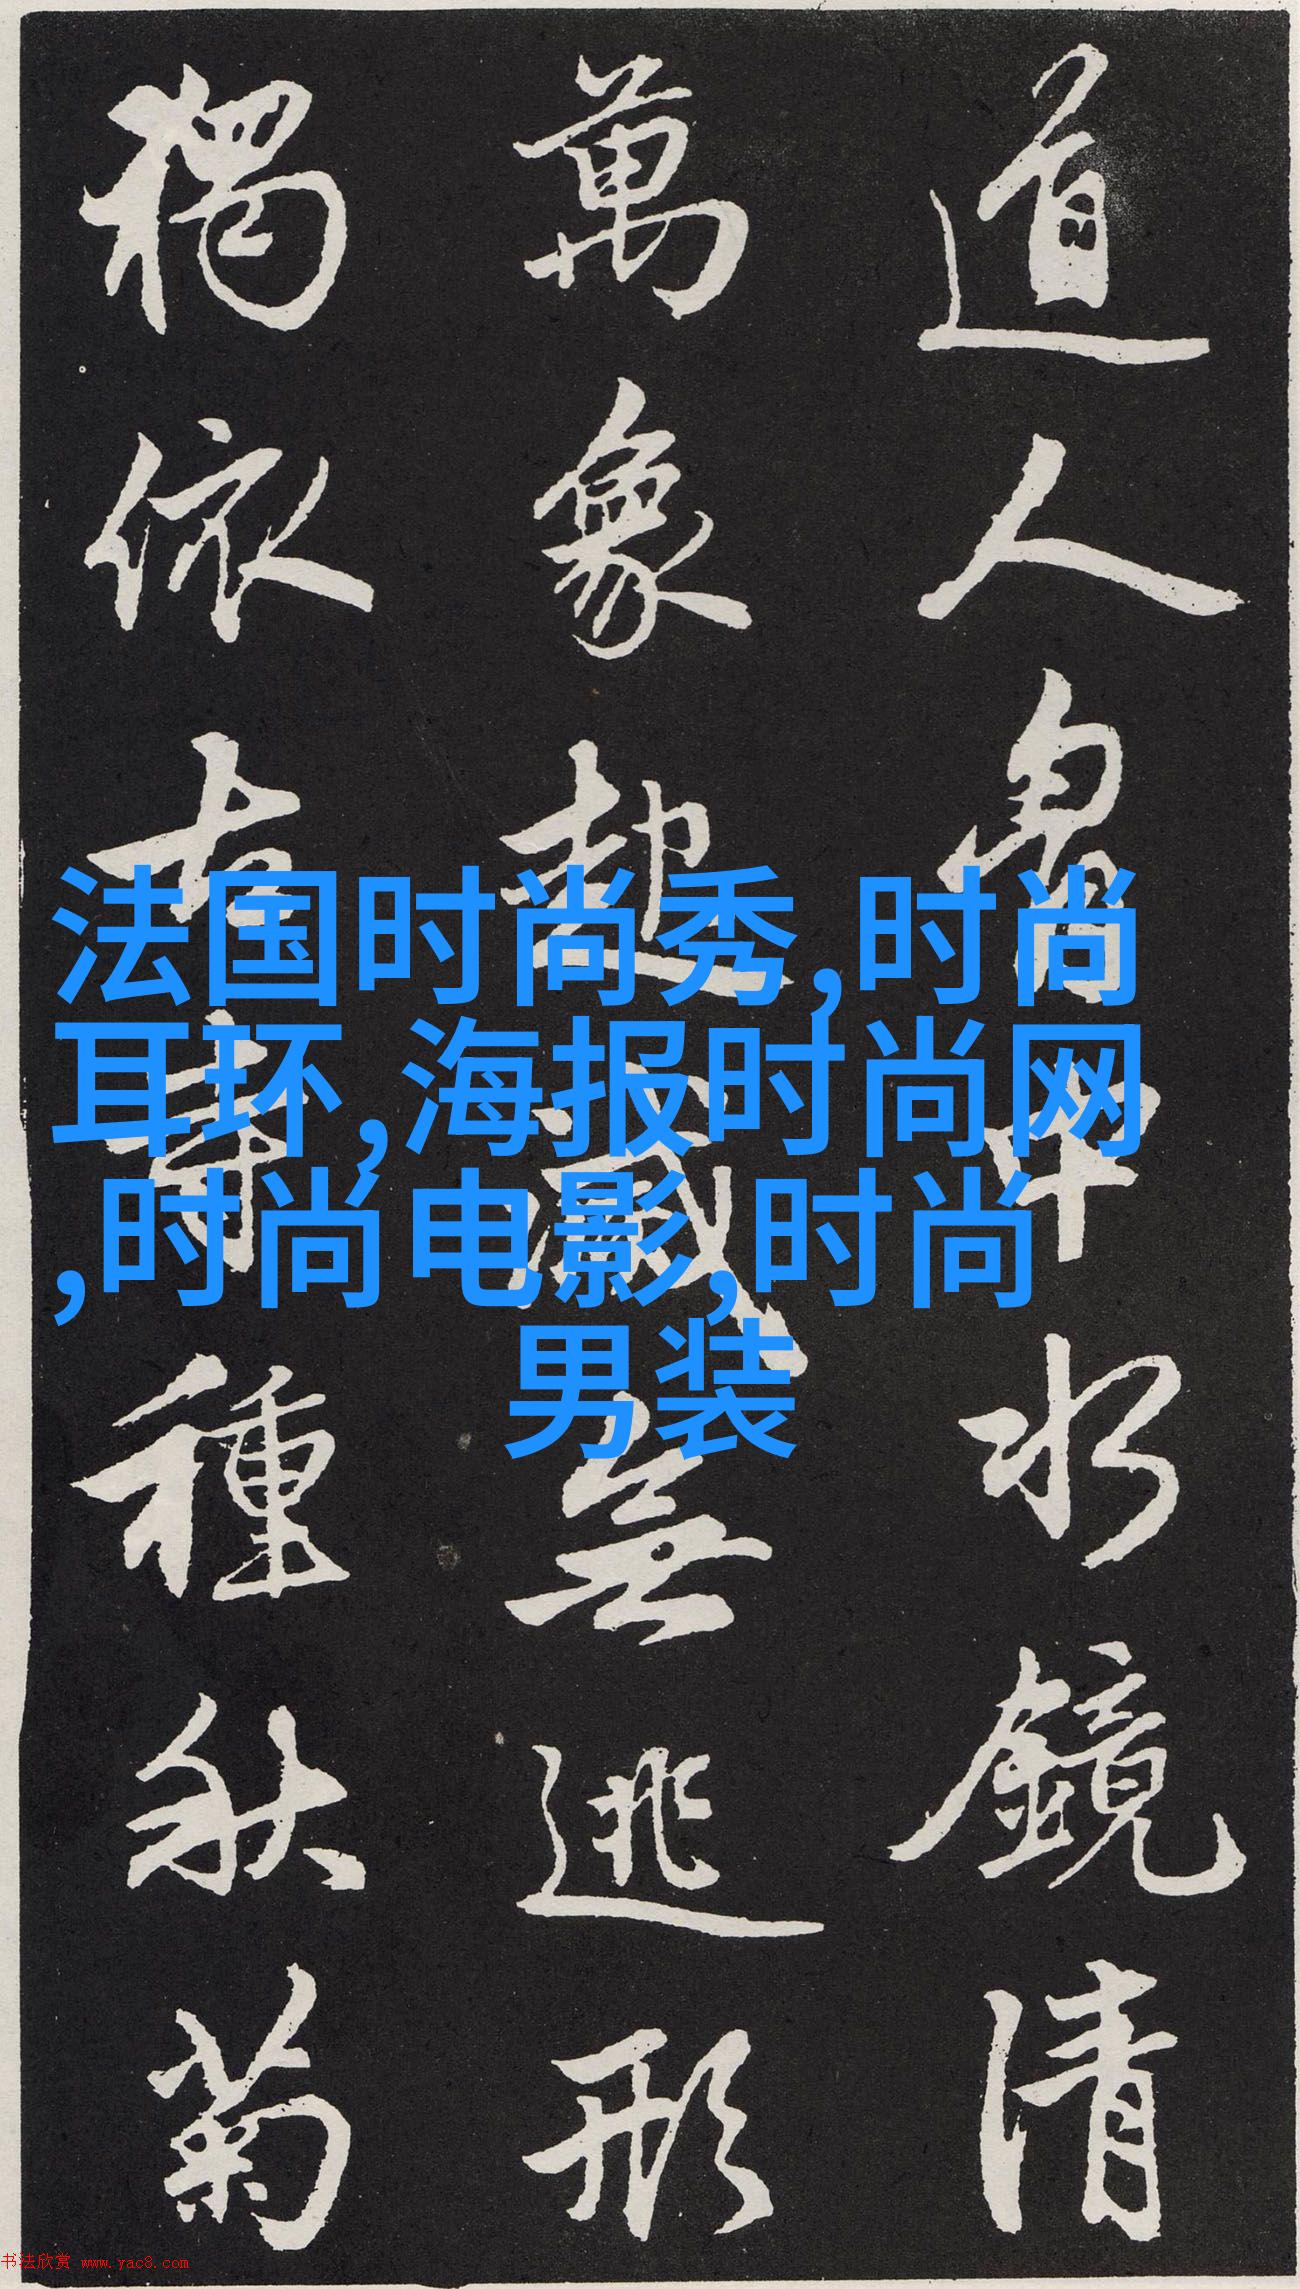 道人胷中水鏡清
萬象起滅無逃形
獨依古寺種秋菊
法国时尚秀,时尚
耳环,海报时尚网
,时尚电影,时尚
男装
书法欣赏 www.yac8.com